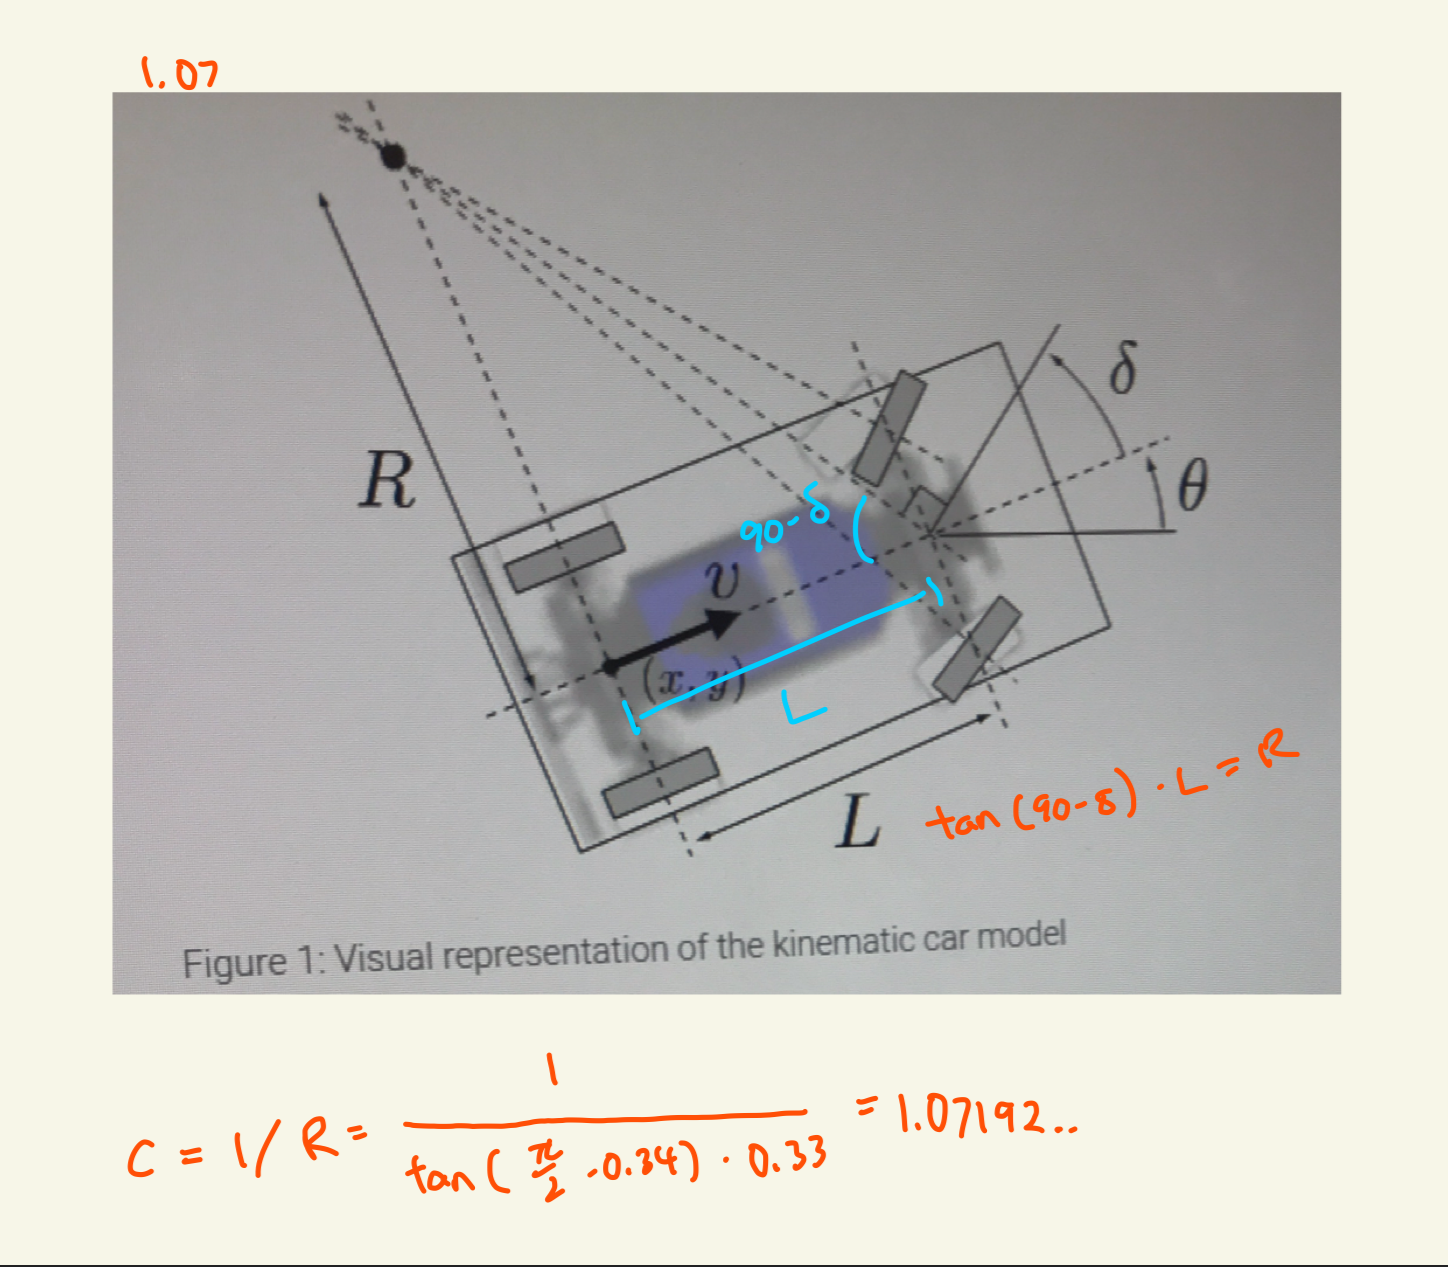 1.07
δ
θ
R
90-δ
v
(x, y)
L
L
tan(90-δ) · L = R
Figure 1: Visual representation of the kinematic car model
C = 1/R = 1 / tan(π/2 - 0.34) · 0.33 = 1.07192..